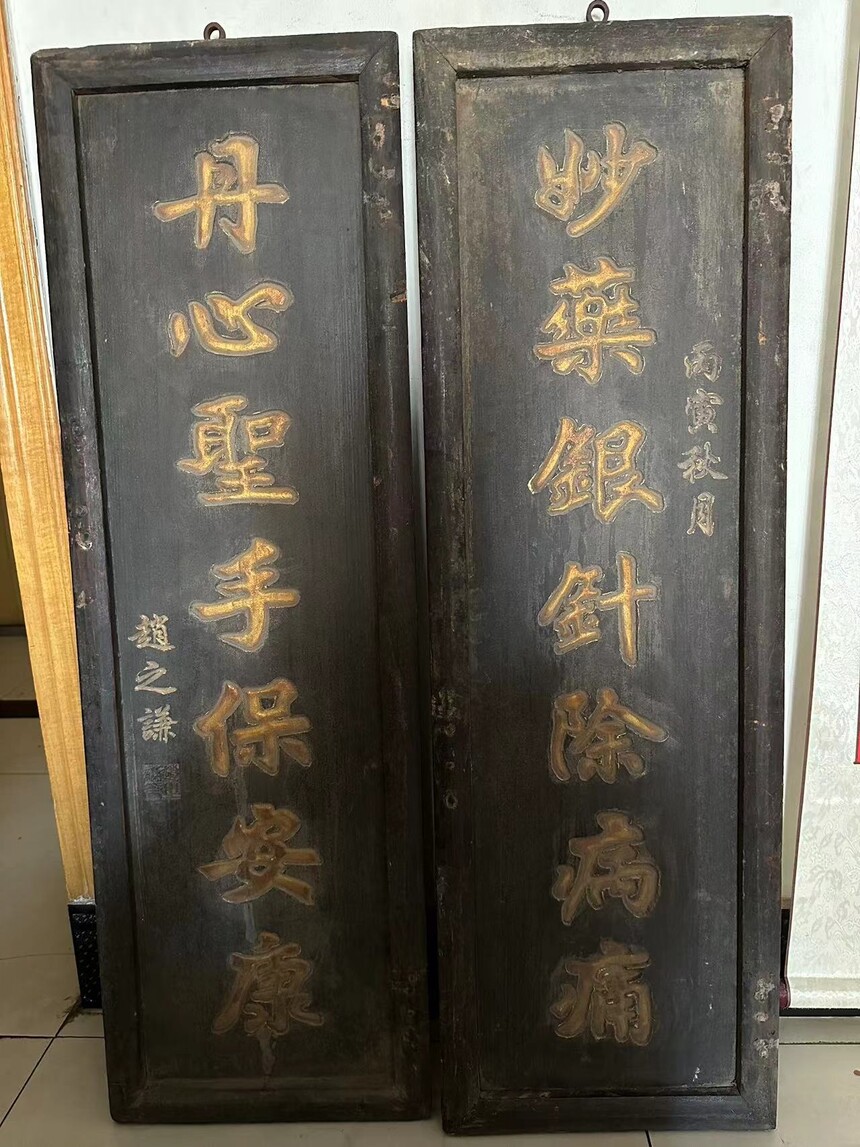 妙藥銀針除病痛
丙寅秋月
丹心聖手保安康
趙之謙